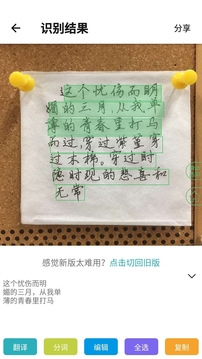 识别结果
分享
这个忧伤而明
媚的三月，从我单
薄的青春里打马
而过，穿过紫堇，穿
过木棉，穿过时
隐时现的悲喜和
无常
感觉新版太难用？点击切回旧版
这个忧伤而明
媚的三月，从我单
薄的青春里打马
翻译
分词
编辑
全选
复制